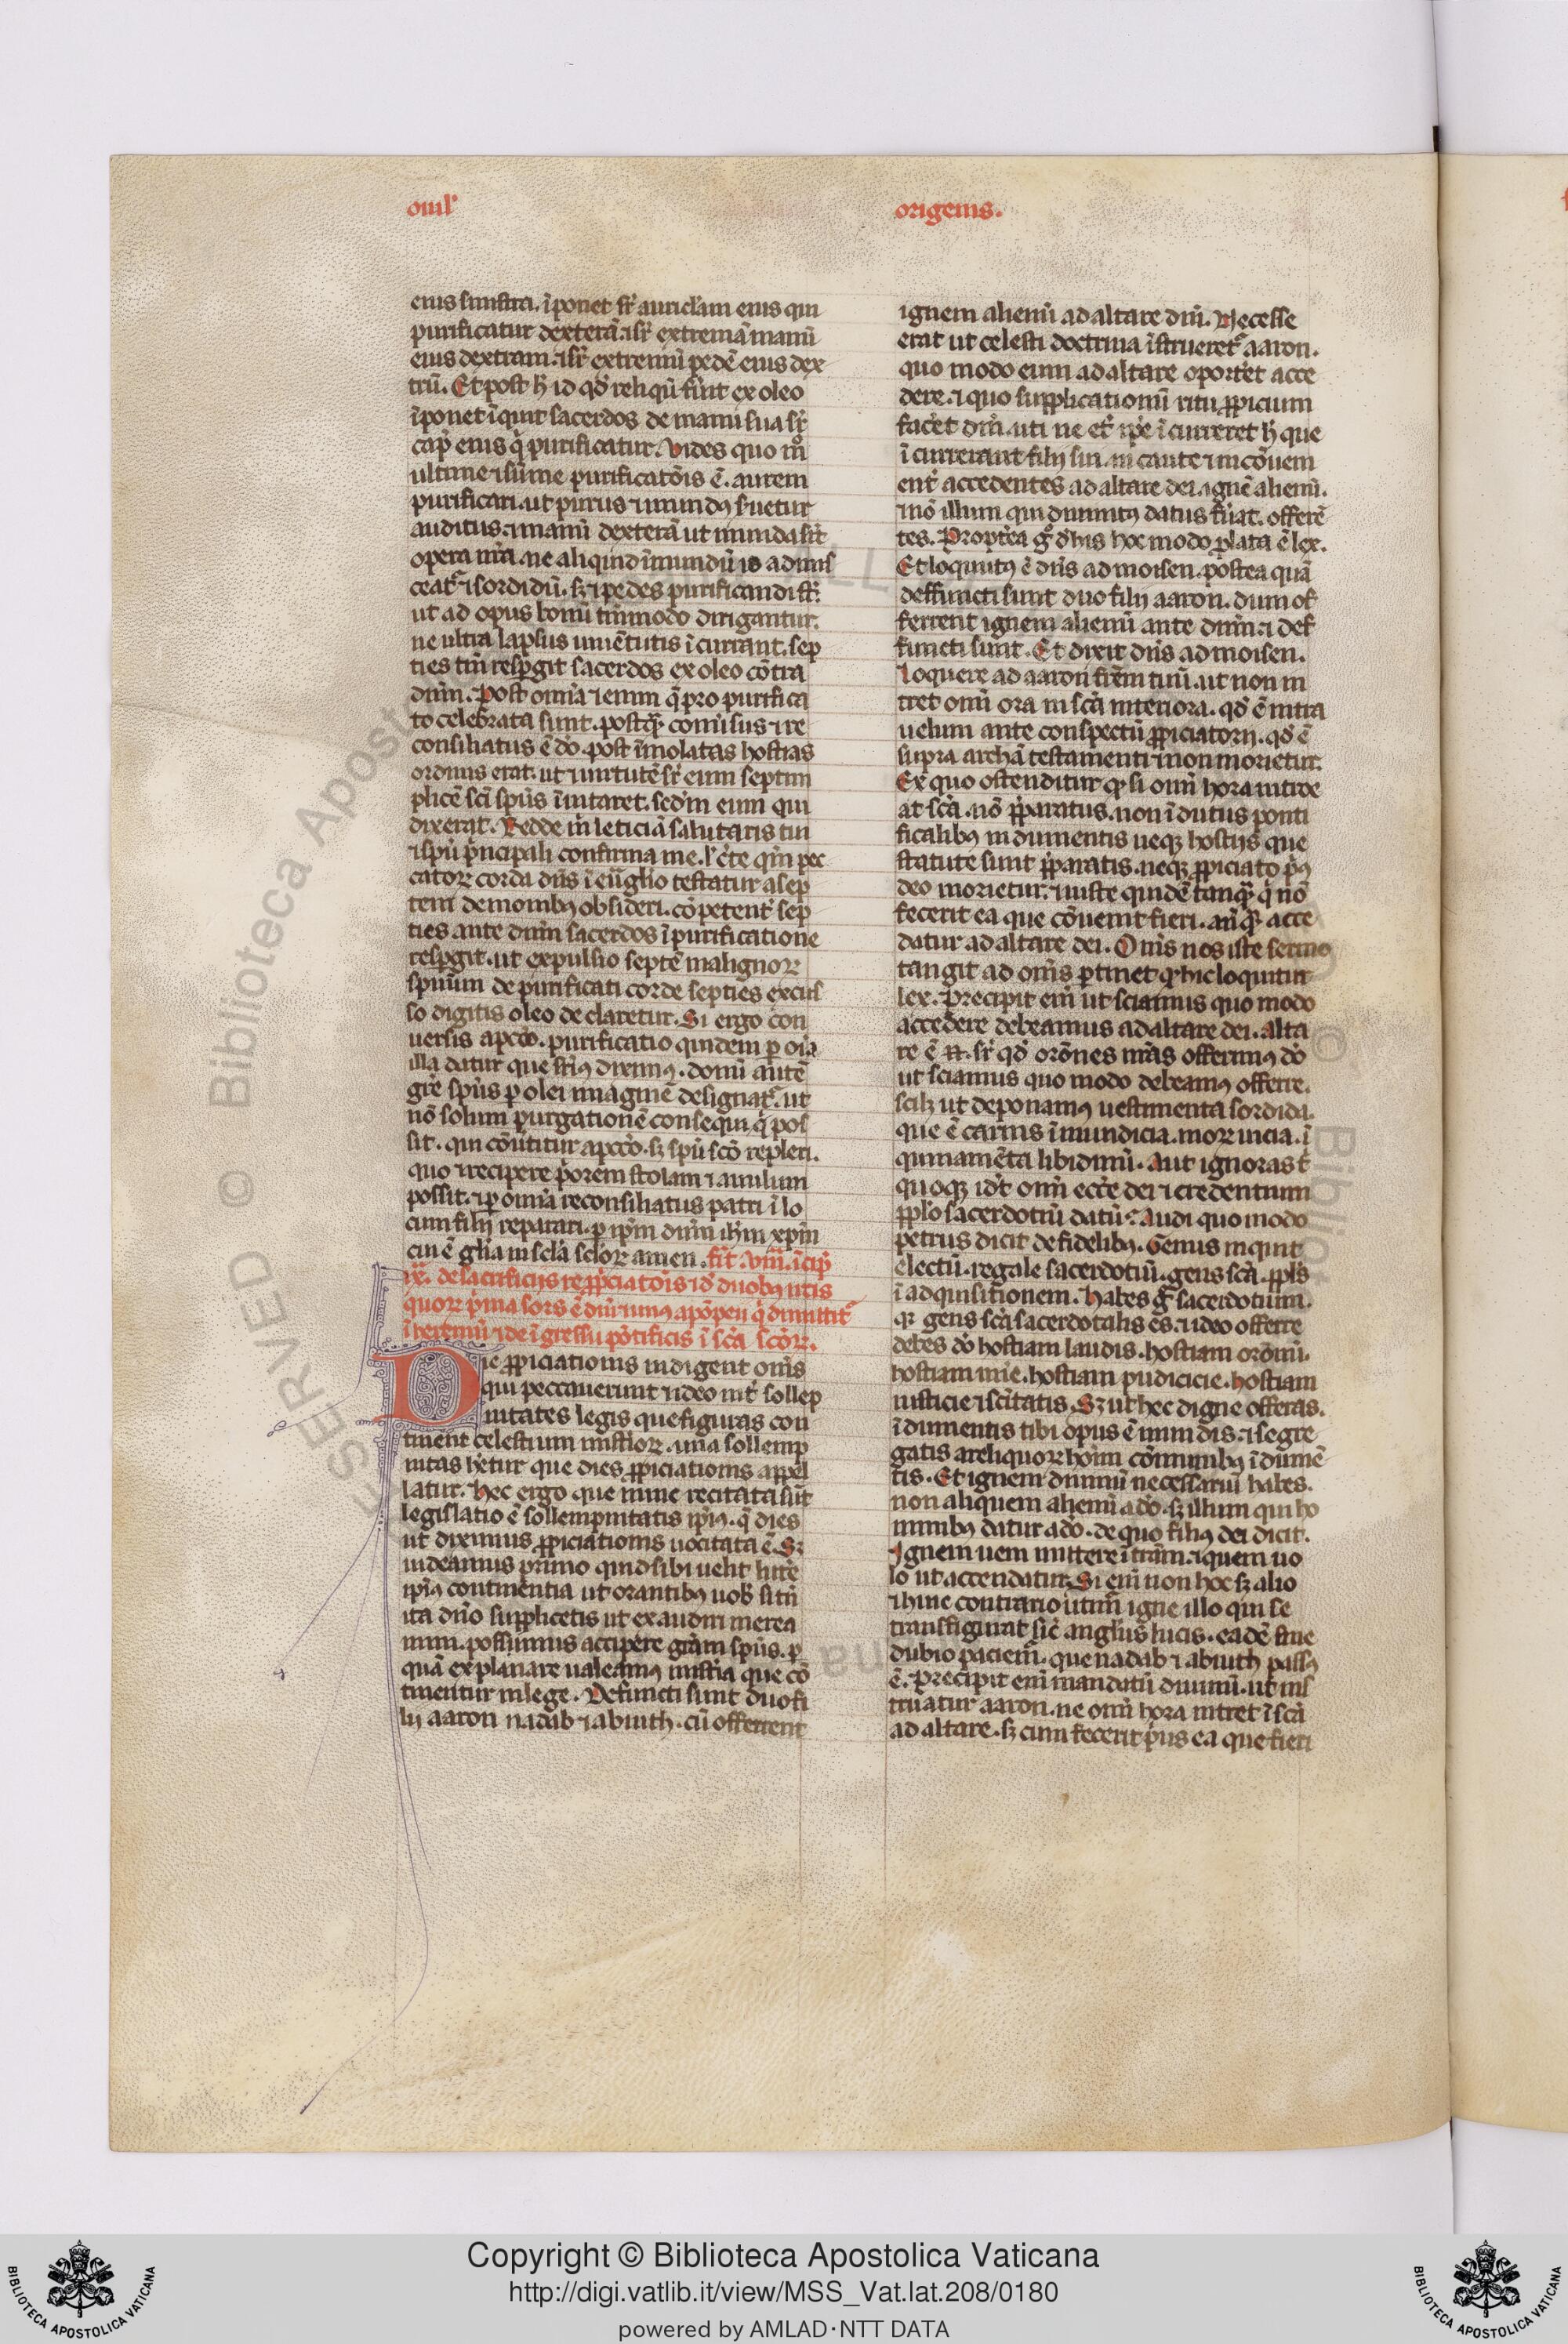 omł
origenis.
eius sinistra. īponet sr̄ auriclam eius qui
purificatur dexterā. ⁊ sr̄ extremā manū
eius dextram. ⁊ sr̄ extremū pedē eius dex
trū. Et post h̄ id qđ reliqū fuīt ex oleo
īponet īquit sacerdos de manu sua sr̄
cap̄ eius q̇ purificatur. Vides quo m̊
ultime ⁊ sūme purificatōis ē. aurem
purificari. ut purus ⁊ mundꝯ suetur
auditus. ⁊ manū dexterā ut munda sīt
opera nr̄a. ne aliquid īmundū is admis
ceat᷑ ⁊ sordidū. sꝫ ⁊ pedes purificandi st̄.
ut ad opus bonū tm̄modo dirigantur.
ne ultra lapsus iuuētutis īcurrant. sep
ties tn̄ resꝑgit sacerdos ex oleo cōtra
dn̄m. Post omīa ⁊ enim q̄ pro purifica
to celebrata sunt. postqꝫ conūsus ⁊ re
consiliatus ē do. post īmolatas hostias
ordinis erat. ut uirtutē sr̄ eum septim
plicē sc̄i spūs īuitaret. sedm eum qui
dixerat. Redde m̄ leticiā salutaris tui
⁊ spū pͥncipali confirma me. ł c̄te qm̄ pec
catoꝝ corda dn̄s ī eūglio testatur a sep
tem demonibꝯ obsideri. cōpetent᷑ sep
ties ante dn̄m sacerdos ī purificatione
resꝑgit. ut expulsio septē malignoꝝ
spūum de purificati corde septies excus
so digitis oleo declaretur. Si ergo con
uersis a pccō. purificatio quidem ꝑ oīa
illa datur que suꝑiꝯ diximꝯ. donū autē
gr̄e spūs ꝑ olei imaginē designat᷑. ut
nō solum purgationē consequi q̇ pos
sit. qui cōutitur a pccō. sꝫ spū scō repleri.
quo ⁊ recipere pͥorem stolam ⁊ anulum
possit. ⁊ ꝑ omīa reconsiliatus patri ī lo
cum filij reparari. ꝑ ip̄m dn̄m ihm̄ xp̄m
cui ē glīa in scl̄a scl̄oꝝ amen. fīt. viii. īcip̄
ix. de sacrificijs repp̄ciatōis id̄ duobꝯ ircis
quoꝝ pͥma sors ē dn̄i unꝯ apōpeu q̇ dimittit᷑
ī heremū ⁊ de īgressu pōtificis ī scā scōꝝ.
Die ꝓpiciationis indigent om̄s
qui peccauerunt ⁊ ideo int᷑ sollep
nitates legis que figuras con
tinent celestium mist̄ioꝝ. una sollemp
nitas h̄etur que dies ꝓpiciationis appel
latur. Hec ergo que nunc recitata sūt
legislatio ē sollempnitatis ip̄iꝯ. q̄ dies
ut diximus ꝓpiciationis uocitata ē. Sꝫ
uideamus primo quid sibi uelit lr̄te
ip̄iꝯ continentia ut orantibꝯ uob̄ si tn̄
ita dn̄o supplicetis ut exaudiri merea
mini. possimus accipere grām spūs. ꝑ
quā explanare ualeamꝯ mist̄ia que cō
tinentur in lege. Defuncti sunt duo fi
lij aaron nadab ⁊ abiuth. cū offerrent
ignem alienū ad altare dn̄i. Necesse
erat ut celesti doctrina īstrueret᷑ aaron.
quo modo eum ad altare oportet acce
dere. ⁊ quo supplicationū ritu ꝓpicium
facēt dn̄m. uti ne et̄ ip̄e īcurreret h̄ que
īcurrerant filij sui. in caute ⁊ incōueni
ent᷑ accedentes ad altare dei. ignē alienū.
⁊ nō illum qui diuinitꝯ datus fuāt. offerē
tes. Propterea g̊ d̄ his hoc modo plata ē lex.
Et loquutꝯ ē dn̄s ad moisen. postea quā
deffuncti sunt duo filij aaron. dum of
ferrent ignem alienū ante dn̄m. ⁊ def
functi sunt. Et dixit dn̄s ad moisen.
Loquere ad aaron frēm tuū. ut non in
tret om̄i ora in scā interiora. qđ ē intra
uelum ante conspectū ꝓpiciatorij. qđ ē
supra archā testamenti ⁊ non morietur.
Ex quo ostenditur qꝫ si om̄i hora introe
at scā. nō p̄paratus. non īdutus ponti
ficalibꝯ indumentis neqꝫ hostijs que
statute sunt p̄paratis. neqꝫ ꝓpiciato pͥꝯ
deo morietur. ⁊ iuste quidē tanqꝫ q̇ nō
fecerit ea que cōuenit fieri. an̄ qꝫ acce
datur ad altare dei. Om̄s nos iste sermo
tangit ad om̄s ꝑtinet qꝫ hic loquitur
lex. Precipit em̄ ut sciamus quo modo
accedere debeamus ad altare dei. alta
re ē n. sr̄ qđ orōnes nr̄as offerimꝯ dō
ut sciamus quo modo debeamꝯ offerre.
scilꝫ ut deponamꝯ uestimenta sordida.
que ē carnis īmundicia. moꝝ incia. ī
quinamēta libidinū. Aut ignoras t̄
quoqꝫ id̄t om̄i ecc̄e dei ⁊ credentium
pp̄lo sacerdotiū datū. Audi quo modo
petrus dicit de fidelibꝯ. Genus inquit
electū. regale sacerdotiū. gens scā. pp̄ls
ī adquisitionem. Habes g̊ sacerdotium.
qꝫ gens scā sacerdotalis es. ⁊ ideo offerre
debes dō hostiam laudis. hostiam orōnū.
hostiam mīe. hostiam pudicicie. hostiam
iusticie ⁊ scītatis. Sꝫ ut hec digne offeras.
īdumentis tibi opus ē mundis. ⁊ segre
gatis a reliquoꝝ hoīm cōmunibꝯ īdumē
tis. Et ignem diuinū necessariū habes.
non aliquem alienū a dō. sꝫ illum qui ho
minibꝯ datur a dō. de quo filiꝯ dei dicit.
Ignem ueni mittere ī trām. ⁊ quem uo
lo ut accendatur. Si em̄ non hoc sꝫ alio
⁊ huic contrario utim̄ igne illo qui se
transfigurat sic̄ anglus lucis. eadē sine
dubio paciem̄. que nadab ⁊ abiuth passꝯ
ē. Precipit em̄ mandatū diuinū. ut ins
truatur aaron. ne om̄i hora intret ī scā
ad altare. sꝫ cum fecerit pͥus ea que fieri
Copyright © Biblioteca Apostolica Vaticana
http://digi.vatlib.it/view/MSS_Vat.lat.208/0180
powered by AMLAD·NTT DATA